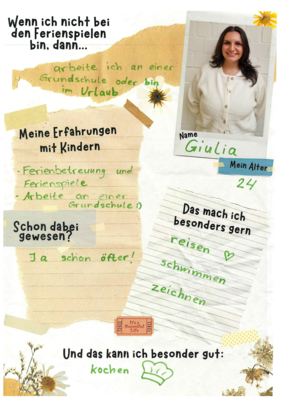 Wenn ich nicht bei
den Ferienspielen
bin, dann...
arbeite ich an einer
Grundschule oder bin
im Urlaub
Name
Giulia
Mein Alter
24
Meine Erfahrungen
mit Kindern
- Ferienbetreuung und
Ferienspiele
- Arbeite an einer
Grundschule :)
Das mach ich
besonders gern
reisen
schwimmen
zeichnen
Schon dabei
gewesen?
Ja schon öfter!
Und das kann ich besonder gut:
kochen